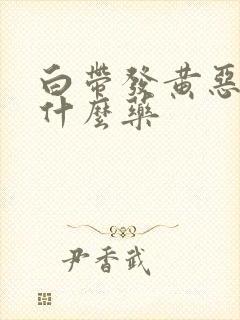 白帶發黃惡
什麼藥
尹香武